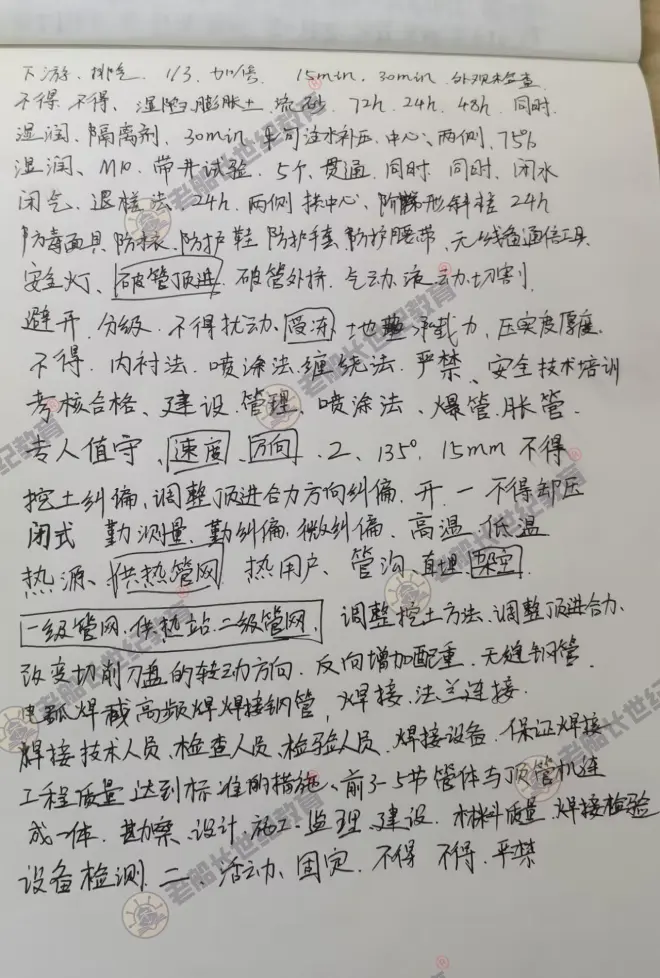 下游、排气、1/3、加倍、15min、30min、外观检查
不得、不得、湿陷、膨胀土、流砂、72h、24h、48h、同时
湿润、隔离剂、30min、不可注水补压、中心、两侧、75%
湿润、M10、带井试验、5个、贯通、同时、同时、闭水
闭气、退槎法、24h、两侧、中心、阶梯形斜槎、24h
防毒面具、防护衣、防护鞋、防护手套、防护腰带、无线通信工具
安全灯、破管顶进、破管外挤、气动、液动、切割
避开、分级、不得扰动、受冻、地基承载力、压实度、厚度
不得、内衬法、喷涂法、缠绕法、严禁、安全技术培训
考核合格、建设、管理、喷涂法、爆管、胀管、
专人值守、速度、方向、2、135°、15mm 不得
挖土纠偏、调整顶进合力方向纠偏、开、一 不得却压
闭式 勤测量、勤纠偏、微纠偏、高温、低温
热源、供热管网、热用户、管沟、直埋、架空
一级管网、供热站、二级管网、调整挖土方法、调整顶进合力、
改变切削刀盘的转动方向、反向增加配重、无缝钢管、
电弧焊或高频焊焊接钢管、焊接、法兰连接、
焊接技术人员、检查人员、检验人员、焊接设备、保证焊接
工程质量达到标准的措施、前3-5节管体与顶管机连
成一体、勘察、设计、施工、监理、建设、材料质量、焊接检验
设备检测、二、活动、固定、不得 不得、严禁
老船长世纪教育